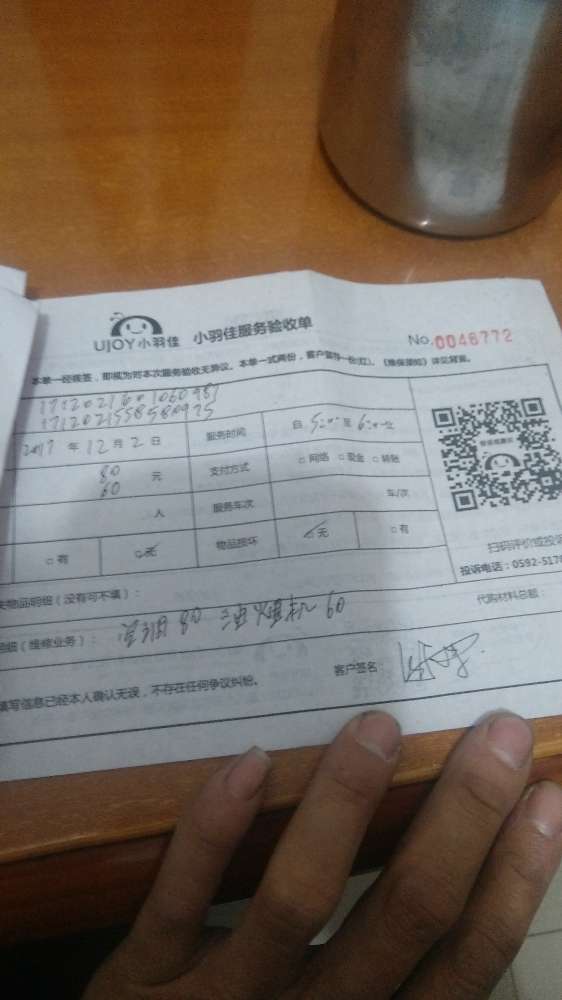 UJOY小羽佳 小羽佳服务验收单 No.0046772
本单一经核签,即视为对本次服务验收无异议。本单一式两份,客户留存一份(红)。《维保须知》详见背面。
2017 年 12 月 2 日 服务时间 自 5:00 至 6:00 止
80
60 元 支付方式 □ 网络 □ 现金 □ 转账
人 服务车次 车/次
□ 有 □ 无 物品损坏 □ 无 □ 有
扫码评价或投诉
投诉电话:0592-517
失物品明细(没有可不填): 代购材料总额
明细(维修业务): 空调 80 油烟机 60
填写信息已经本人确认无误,不存在任何争议纠纷。 客户签名: